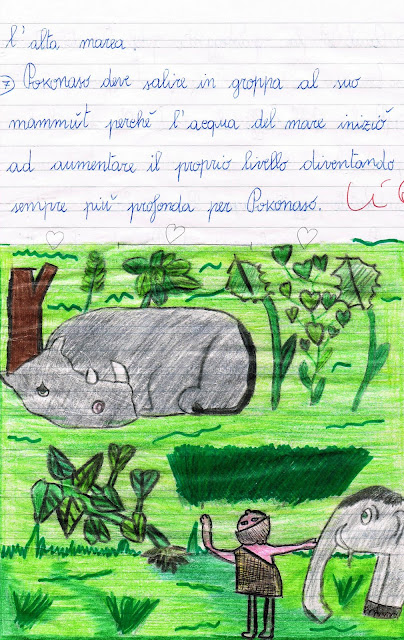 l'alta marea.
7) Pokonaso deve salire in groppa al suo
mammùt perchè l'acqua del mare iniziò
ad aumentare il proprio livello diventando
sempre più profonda per Pokonaso.